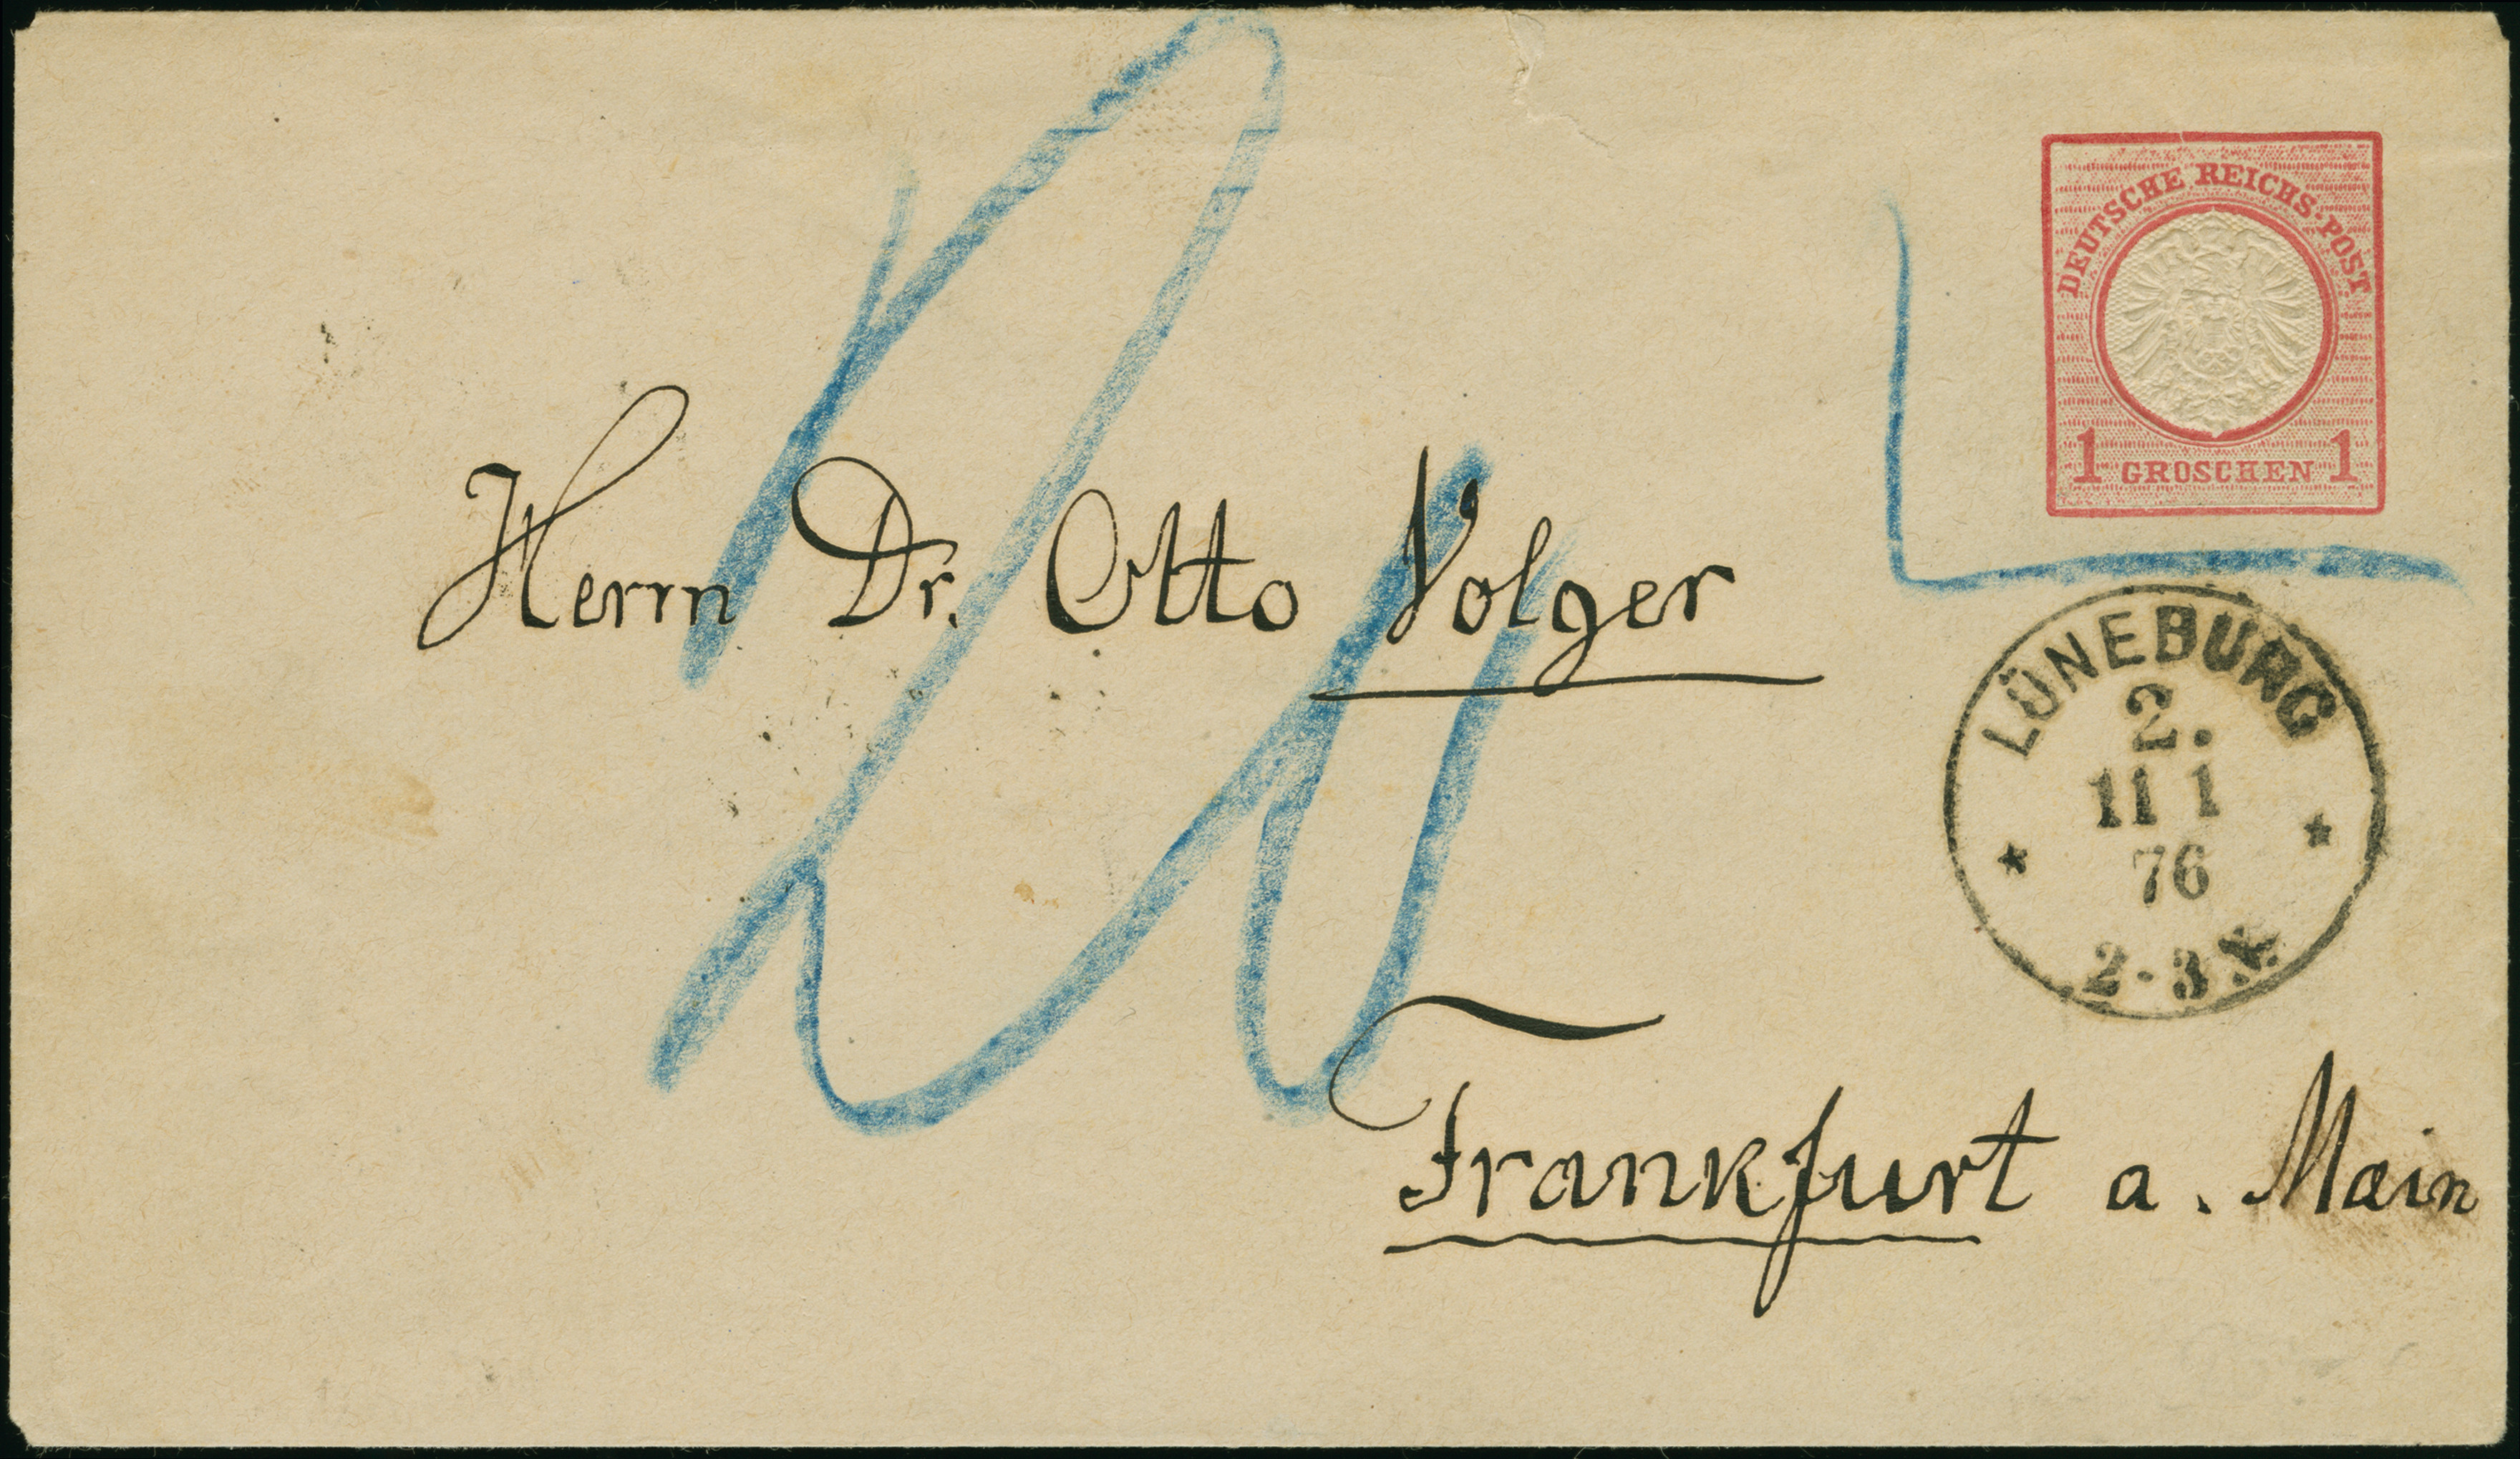 DEUTSCHE REICHS-POST
1 GROSCHEN 1
Herrn Dr. Otto Volger
LÜNEBURG
2.
11 1
76
2-3 N.
Frankfurt a. Main